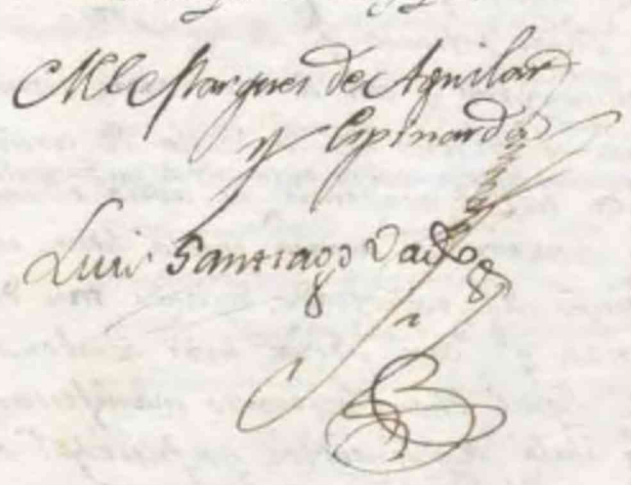 El Marques de Aguilar
y Espinarda
Luis Santiago Vado